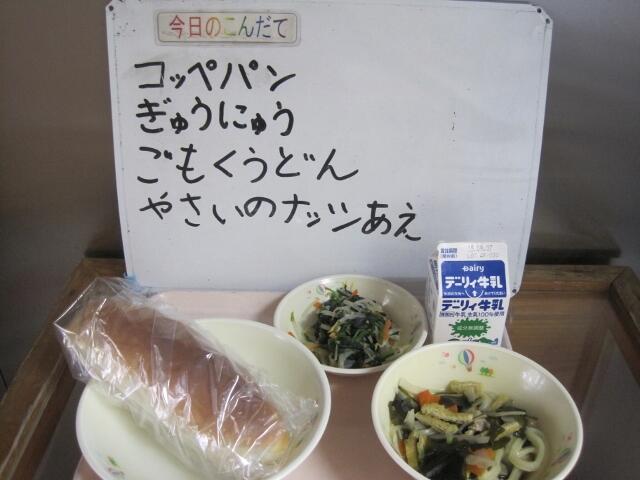 今日のこんだて
コッペパン
ぎゅうにゅう
ごもくうどん
やさいのナッツあえ
Dairy
デーリィ牛乳
デーリィ牛乳
成分無調整